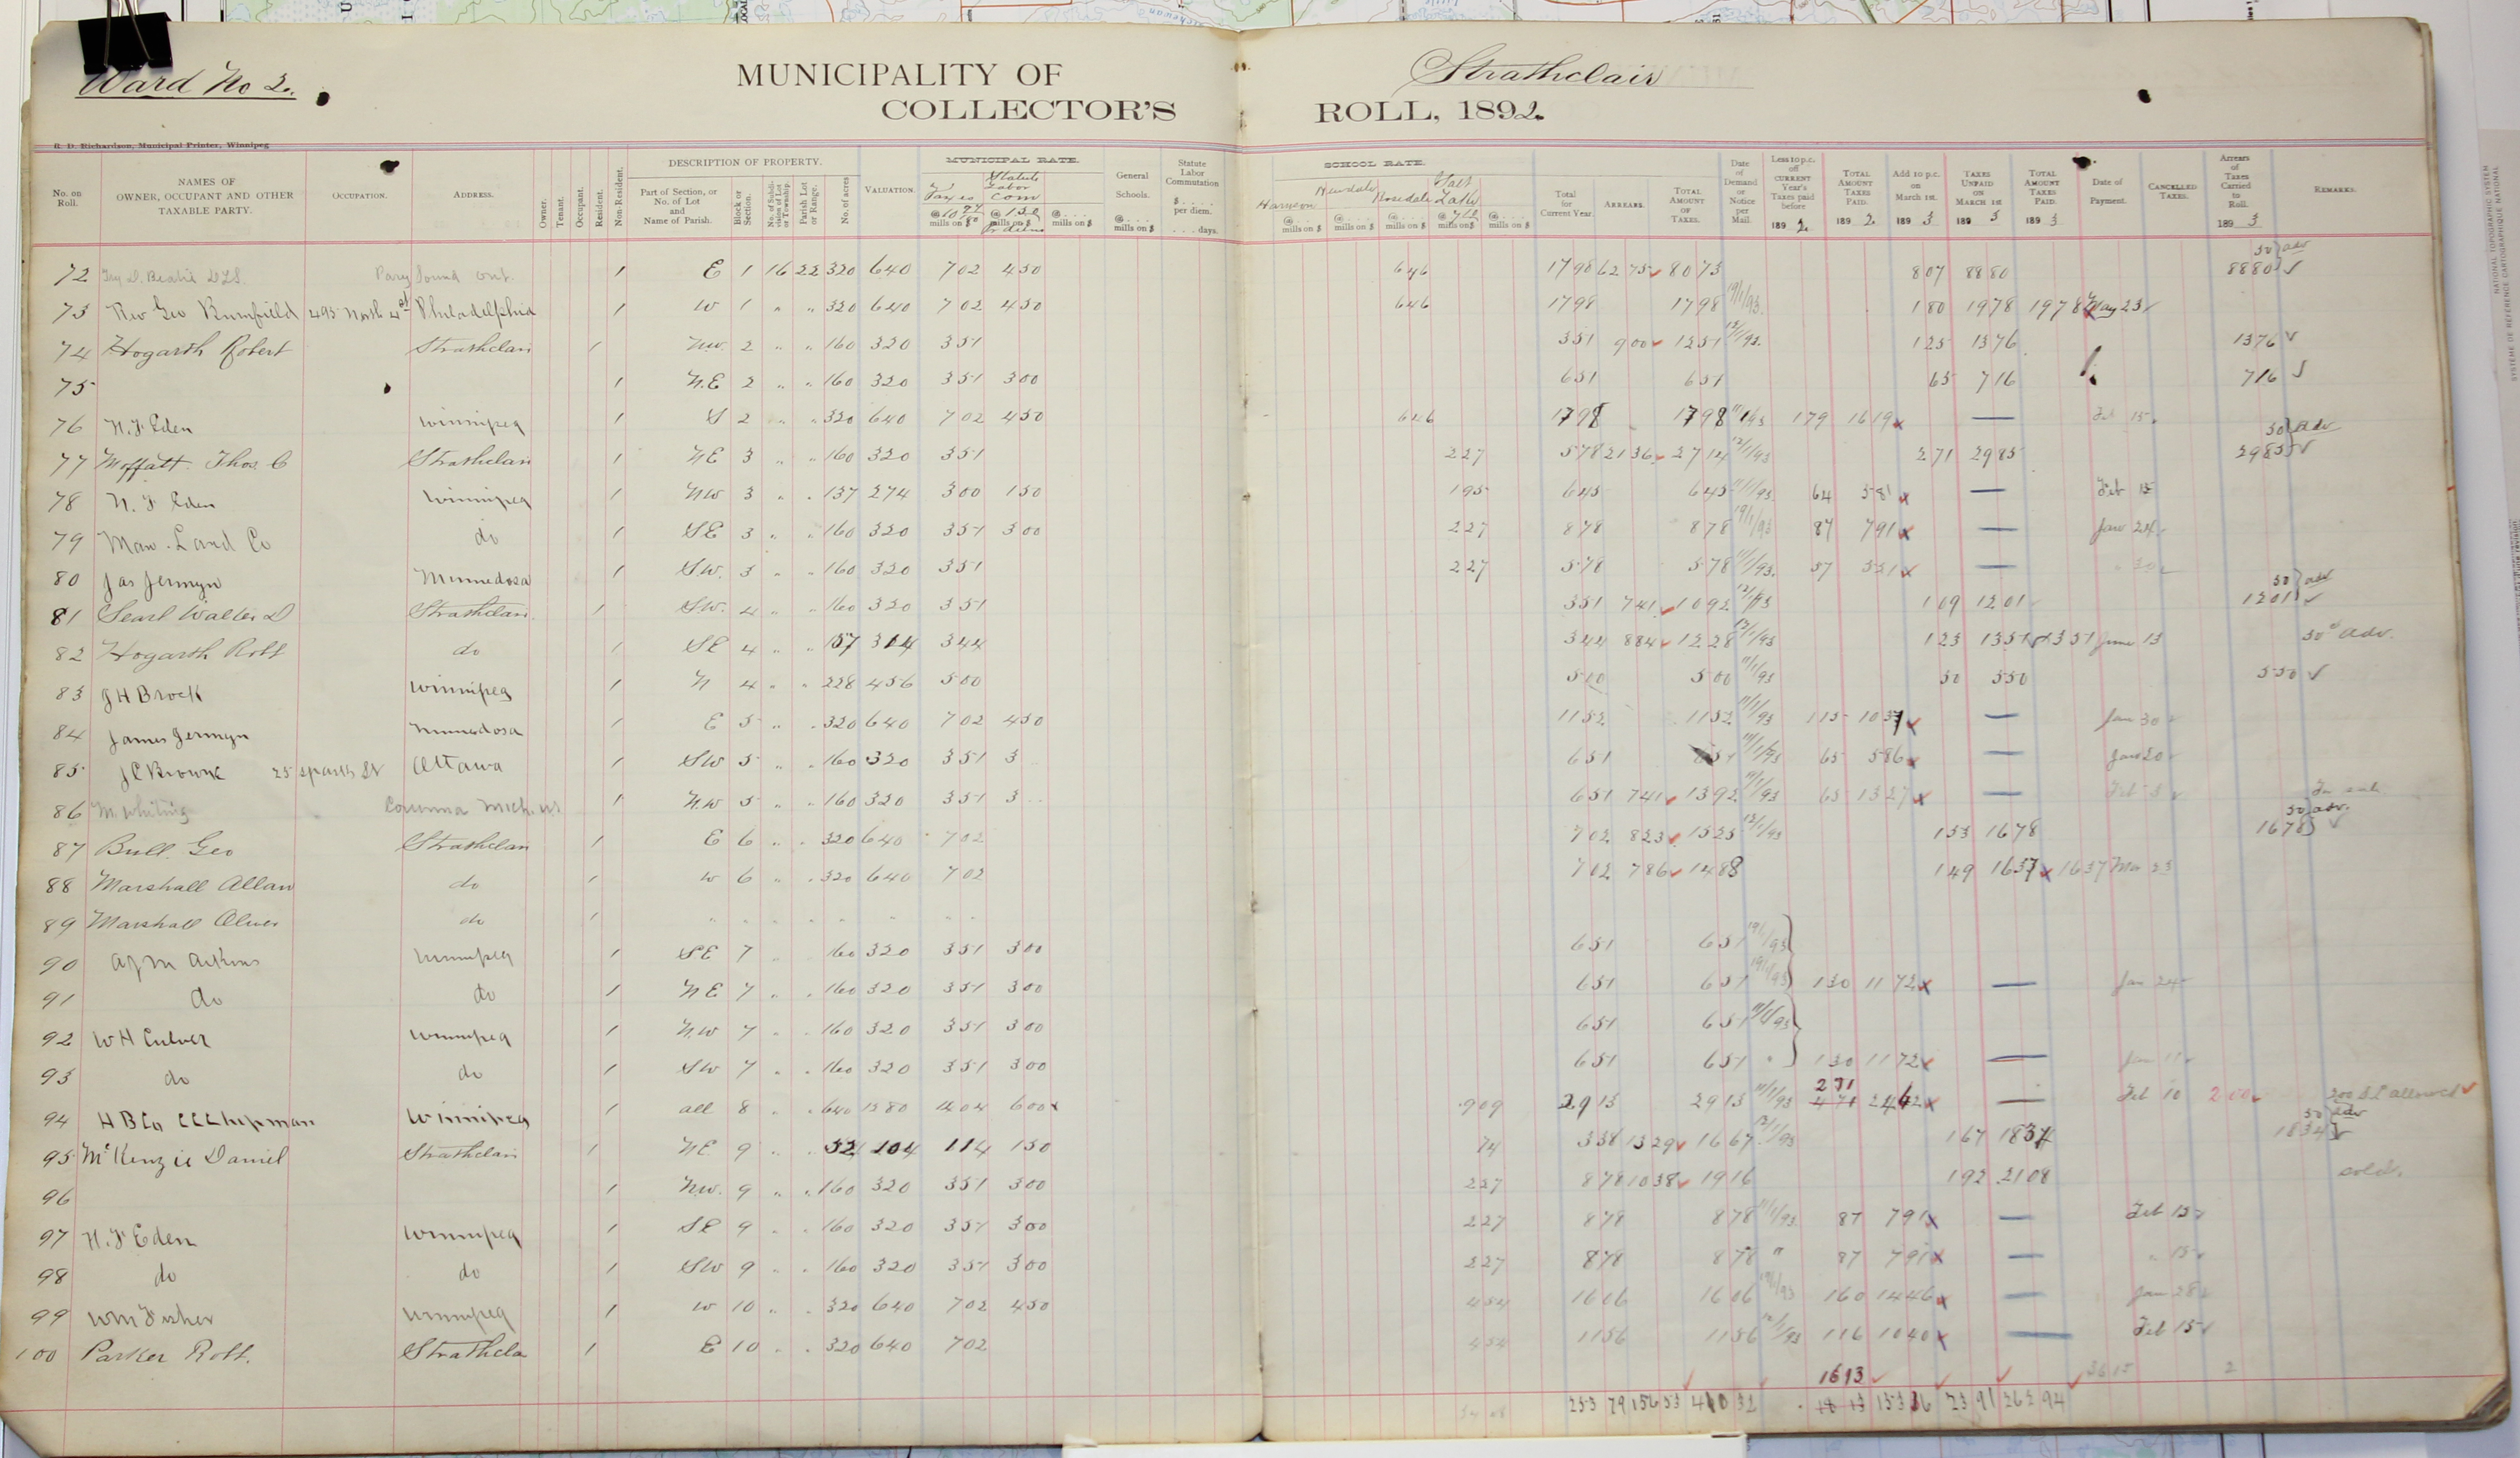 Ward No 2.
MUNICIPALITY OF Strathclair
COLLECTOR'S ROLL, 1892.
R. D. Richardson, Municipal Printer, Winnipeg
No. on Roll. NAMES OF OWNER, OCCUPANT AND OTHER TAXABLE PARTY. OCCUPATION. ADDRESS. Owner. Tenant. Occupant. Resident. Non-Resident. DESCRIPTION OF PROPERTY. Part of Section, or No. of Lot and Name of Parish. Block or Section. No. of Subdivision of Lot or Township. Parish Lot or Range. No. of acres VALUATION. MUNICIPAL RATE. Statute Labor Com mills on $ General Schools. @ mills on $ Statute Labor Commutation $ per diem. days. SCHOOL RATE. Newdale Rosedale Salt Lake mills on $ Total for Current Year. ARREARS. TOTAL AMOUNT OF TAXES. Date of Demand or Notice per Mail. Less 10 p.c. off CURRENT Year's Taxes paid before 1892 TOTAL AMOUNT TAXES PAID. 1892 Add 10 p.c. on March 1st. 1893 TAXES UNPAID ON MARCH 1st 1893 TOTAL AMOUNT TAXES PAID. 1893 Date of Payment. CANCELLED TAXES. Arrears of Taxes Carried to Roll. 1893 REMARKS.
72 Parry Sound Ont. 1 E 1 16 22 320 640 702 450 646 1798 6275 8073 807 8880 8880 50 adv
73 Rev Geo Bumfield 495 North 4 st Philadelphia 1 W 1 " " 320 640 702 450 646 1798 1798 19/1/93 180 1978 1978 May 23
74 Hogarth Robert Strathclair 1 N.W. 2 " " 160 320 351 351 900 1251 12/1/93 125 1376 1376
75 1 N.E 2 " " 160 320 351 300 651 651 65 716 716
76 N.F Eden Winnipeg 1 S 2 " " 320 640 702 450 646 1798 1798 179 1619 — Feb 15
77 Moffatt Thos. C Strathclair 1 NE 3 " " 160 320 351 227 578 2136 2714 12/1/93 271 2985 2985 50 adv
78 N. F Eden Winnipeg 1 NW 3 " " 137 274 300 150 195 645 645 11/1/93 64 581 — Feb 15
79 Man. Land Co do 1 SE 3 " " 160 320 351 300 227 878 878 19/1/93 87 791 — Jan 24
80 Jas Jermyn Minnedosa 1 S.W. 3 " " 160 320 351 227 578 578 11/1/93 57 521 — " 30
81 Searl Walter D Strathclair 1 SW. 4 " " 160 320 351 351 741 1092 12/1/93 109 1201 1201 50 adv
82 Hogarth Robt do 1 SE 4 " " 157 314 344 344 884 1228 12/1/93 123 1351 1351 June 13 50c adv.
83 J H Brock Winnipeg 1 N 4 " " 228 456 500 500 500 11/1/93 50 550 550
84 James Jermyn Minnedosa 1 E 5 " " 320 640 702 450 1152 1152 11/1/93 115 1037 — Jan 30
85 J C Browne 25 Sparks St Ottawa 1 SW 5 " " 160 320 351 3 651 651 11/1/93 65 586 — Jan 20
86 M. Whiting Corunna Mich. US 1 N.W 5 " " 160 320 351 3 651 741 1392 11/1/93 65 1327 —
87 Bull. Geo Strathclair 1 E 6 " " 320 640 702 702 823 1525 12/1/93 153 1678 1678 50 adv.
88 Marshall Allan do 1 W 6 " " 320 640 702 702 786 1488 149 1637 1637 Mar 23
89 Marshall Oliver do 1 " " " " " " "
90 Winnipeg 1 SE 7 " 160 320 351 300 651 651 19/1/93
91 do do 1 NE 7 " " 160 320 351 300 651 651 19/1/93 130 1172 — Jan 24
92 W H Culver Winnipeg 1 N.W 7 " " 160 320 351 300 651 651 11/1/93
93 do do 1 SW 7 " " 160 320 351 300 651 651 " 130 1172 —
94 H B Co C C Chipman Winnipeg 1 all 8 " " 640 1280 1404 600 909 2913 2913 11/1/93 271 2442 — Feb 10 200 200 S L allowed
95 McKenzie Daniel Strathclair 1 NE 9 " " 52 104 114 150 74 338 1329 1667 12/1/93 167 1834 1834 50 adv
96 1 N.W. 9 " " 160 320 351 300 227 878 1038 1916 192 2108 sold.
97 N. F Eden Winnipeg 1 SE 9 " " 160 320 351 300 227 878 878 11/1/93 87 791 — Feb 15
98 do do 1 SW 9 " " 160 320 351 300 227 878 878 " 87 791 — " 15
99 Wm Fisher Winnipeg 1 W 10 " " 320 640 702 450 454 1606 1606 19/1/93 160 1446 — Jan 28
100 Parker Robt. Strathcla 1 E 10 " " 320 640 702 454 1156 1156 12/1/93 116 1040 — Feb 15
1613
253 79 156 53 410 32 18 13 153 36 23 91 262 94